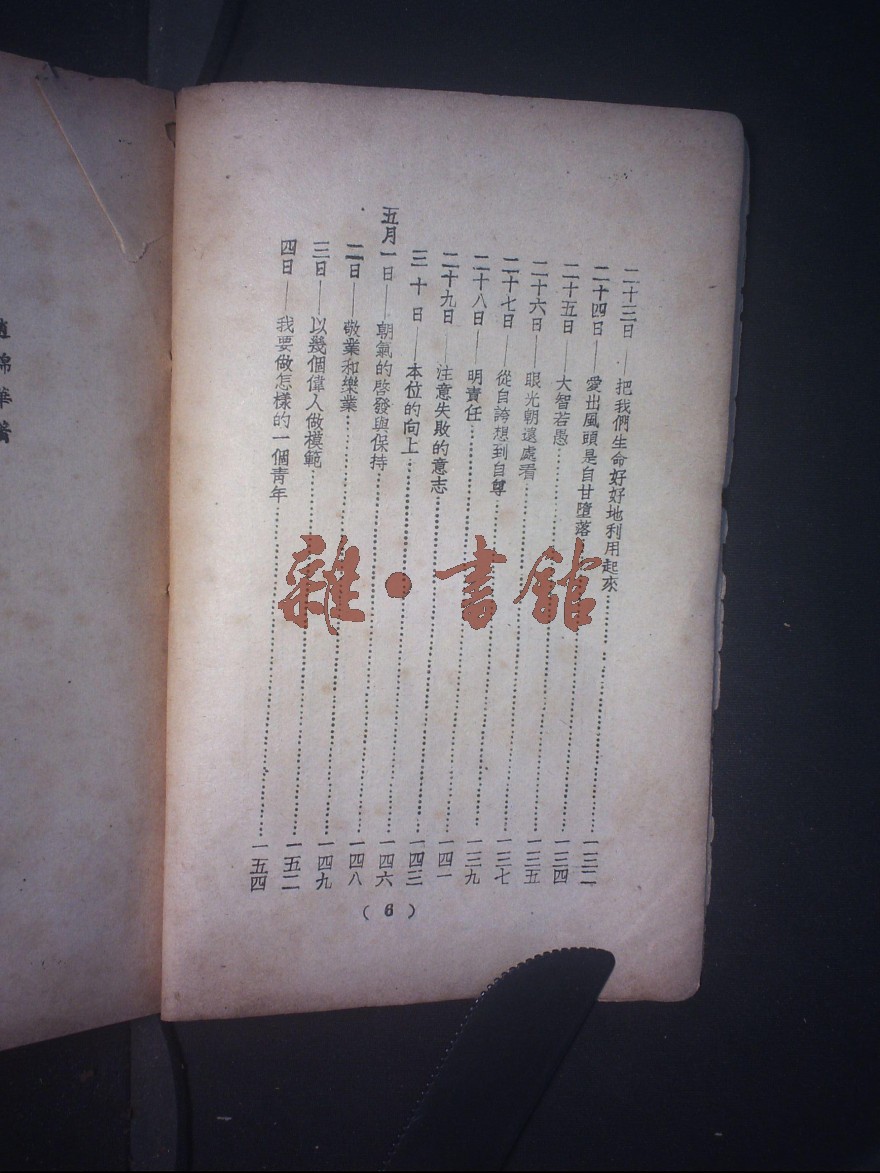 二十三日——把我們生命好好地利用起來……一三二
二十四日——愛出風頭是自甘墮落……一三四
二十五日——大智若愚……一三五
二十六日——眼光朝遠處看……一三七
二十七日——從自誇想到自尊……一三九
二十八日——明責任……一四一
二十九日——注意失敗的意志……一四三
三十日——本位的向上……一四六
五月一日——朝氣的啓發與保持……一四八
二日——敬業和樂業……一四九
三日——以幾個偉人做模範……一五二
四日——我要做怎樣的一個青年……一五四
（6）
錦華著
雜•書館